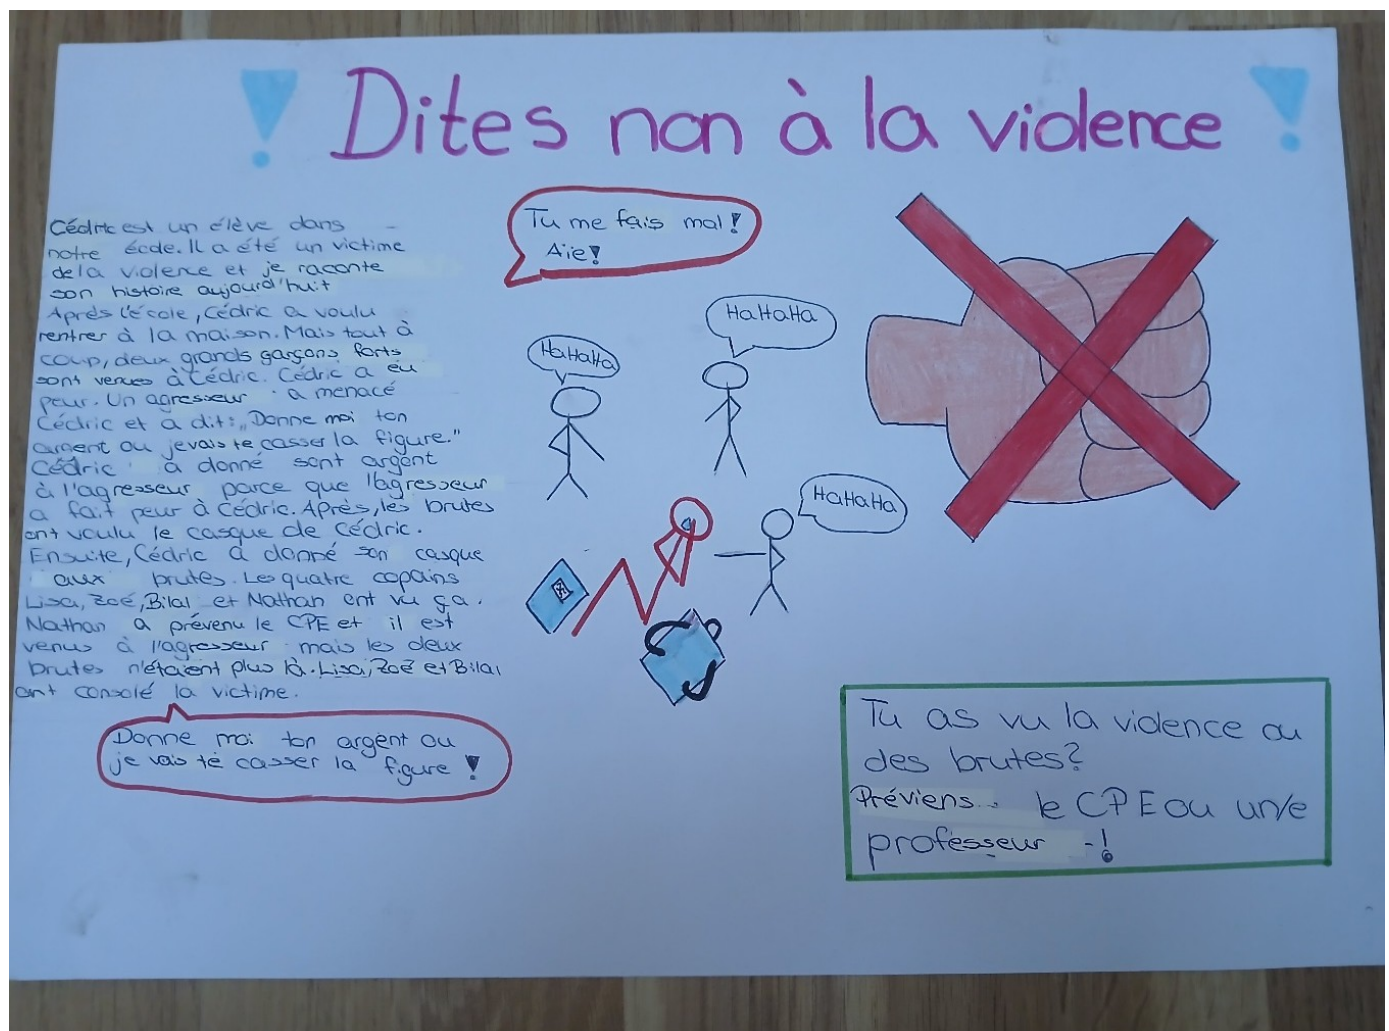 ! Dites non à la violence !
Cédric est un élève dans
notre école. Il a été un victime
de la violence et je raconte
son histoire aujourd'huit
Après l'école, Cédric a voulu
rentrer à la maison. Mais tout à
coup, deux grands garçons forts
sont venues à Cédric. Cédric a eu
peur. Un agresseur a menacé
Cédric et a dit: „Donne moi ton
argent ou je vais te casser la figure."
Cédric a donné sont argent
à l'agresseur parce que l'agresseur
a fait peur à Cédric. Après, les brutes
ont voulu le casque de Cédric.
Ensuite, Cédric a donné son casque
aux brutes. Les quatre copains
Lisa, Zoé, Bilal et Nathan ont vu ça.
Nathan a prévenu le CPE et il est
venus à l'agresseur mais les deux
brutes n'étaient plus là. Lisa, Zoé et Bilal
ont consolé la victime.
Donne moi ton argent ou
je vais te casser la figure !
Tu me fais mal !
Aïe !
HaHaHa
HaHaHa
HaHaHa
Tu as vu la violence ou
des brutes?
Préviens... le CPE ou un/e
professeur -!